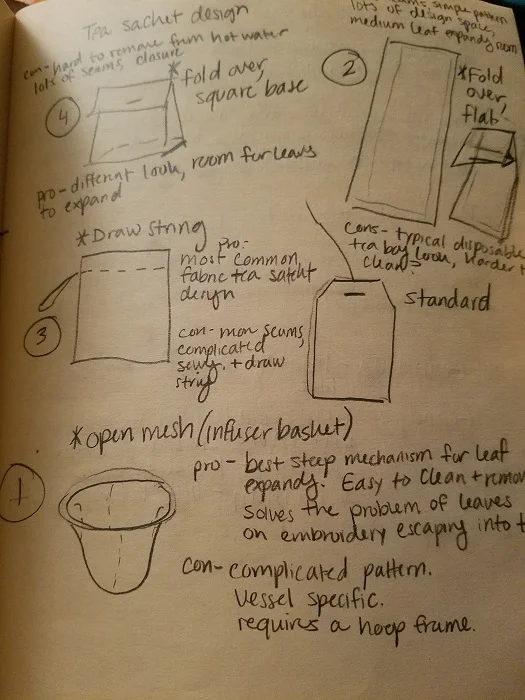 Tea sachet design
con- hard to remove from hot water
lots of seams, closure
*fold over,
square base
4
pro- different look, room for leaves
to expand
simple pattern
lots of design space,
medium leaf expandg room
2
*Fold
over
flab!
cons- typical disposable
tea bag look, harder t
clean?
*Draw string
3
pro:
most common,
fabric tea satcht
design
con- mon seams,
complicated
sewg. + draw
string
standard
*open mesh (infuser basket)
1
pro- best steep mechanism for leaf
expandg. Easy to clean + remov
solves the problem of leaves
on embroidery escaping into t
con- complicated pattern.
vessel specific.
requires a hoop frame.